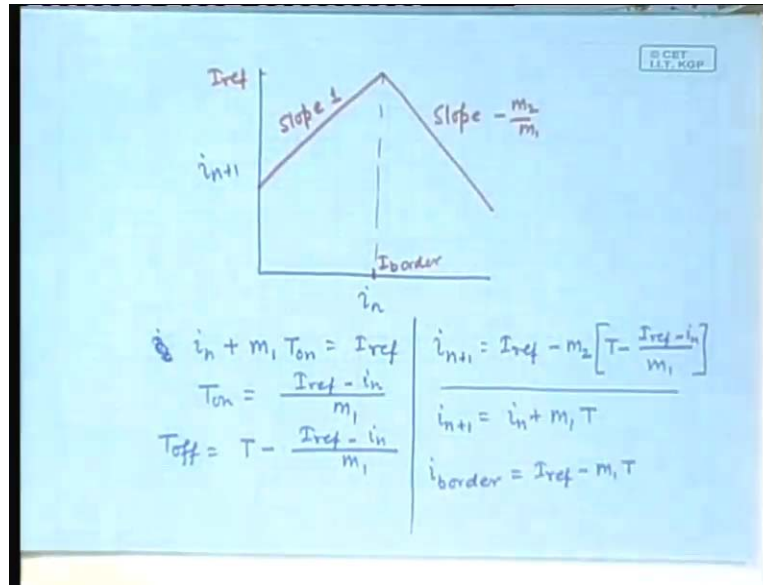 © CET
I.I.T. KGP
Iref
Slope 1
Slope - m₂/m₁
iₙ₊₁
Iborder
iₙ
iₙ + m₁ Ton = Iref
Ton = (Iref - iₙ)/m₁
Toff = T - (Iref - iₙ)/m₁
iₙ₊₁ = Iref - m₂ [T - (Iref - iₙ)/m₁]
iₙ₊₁ = iₙ + m₁ T
iborder = Iref - m₁ T